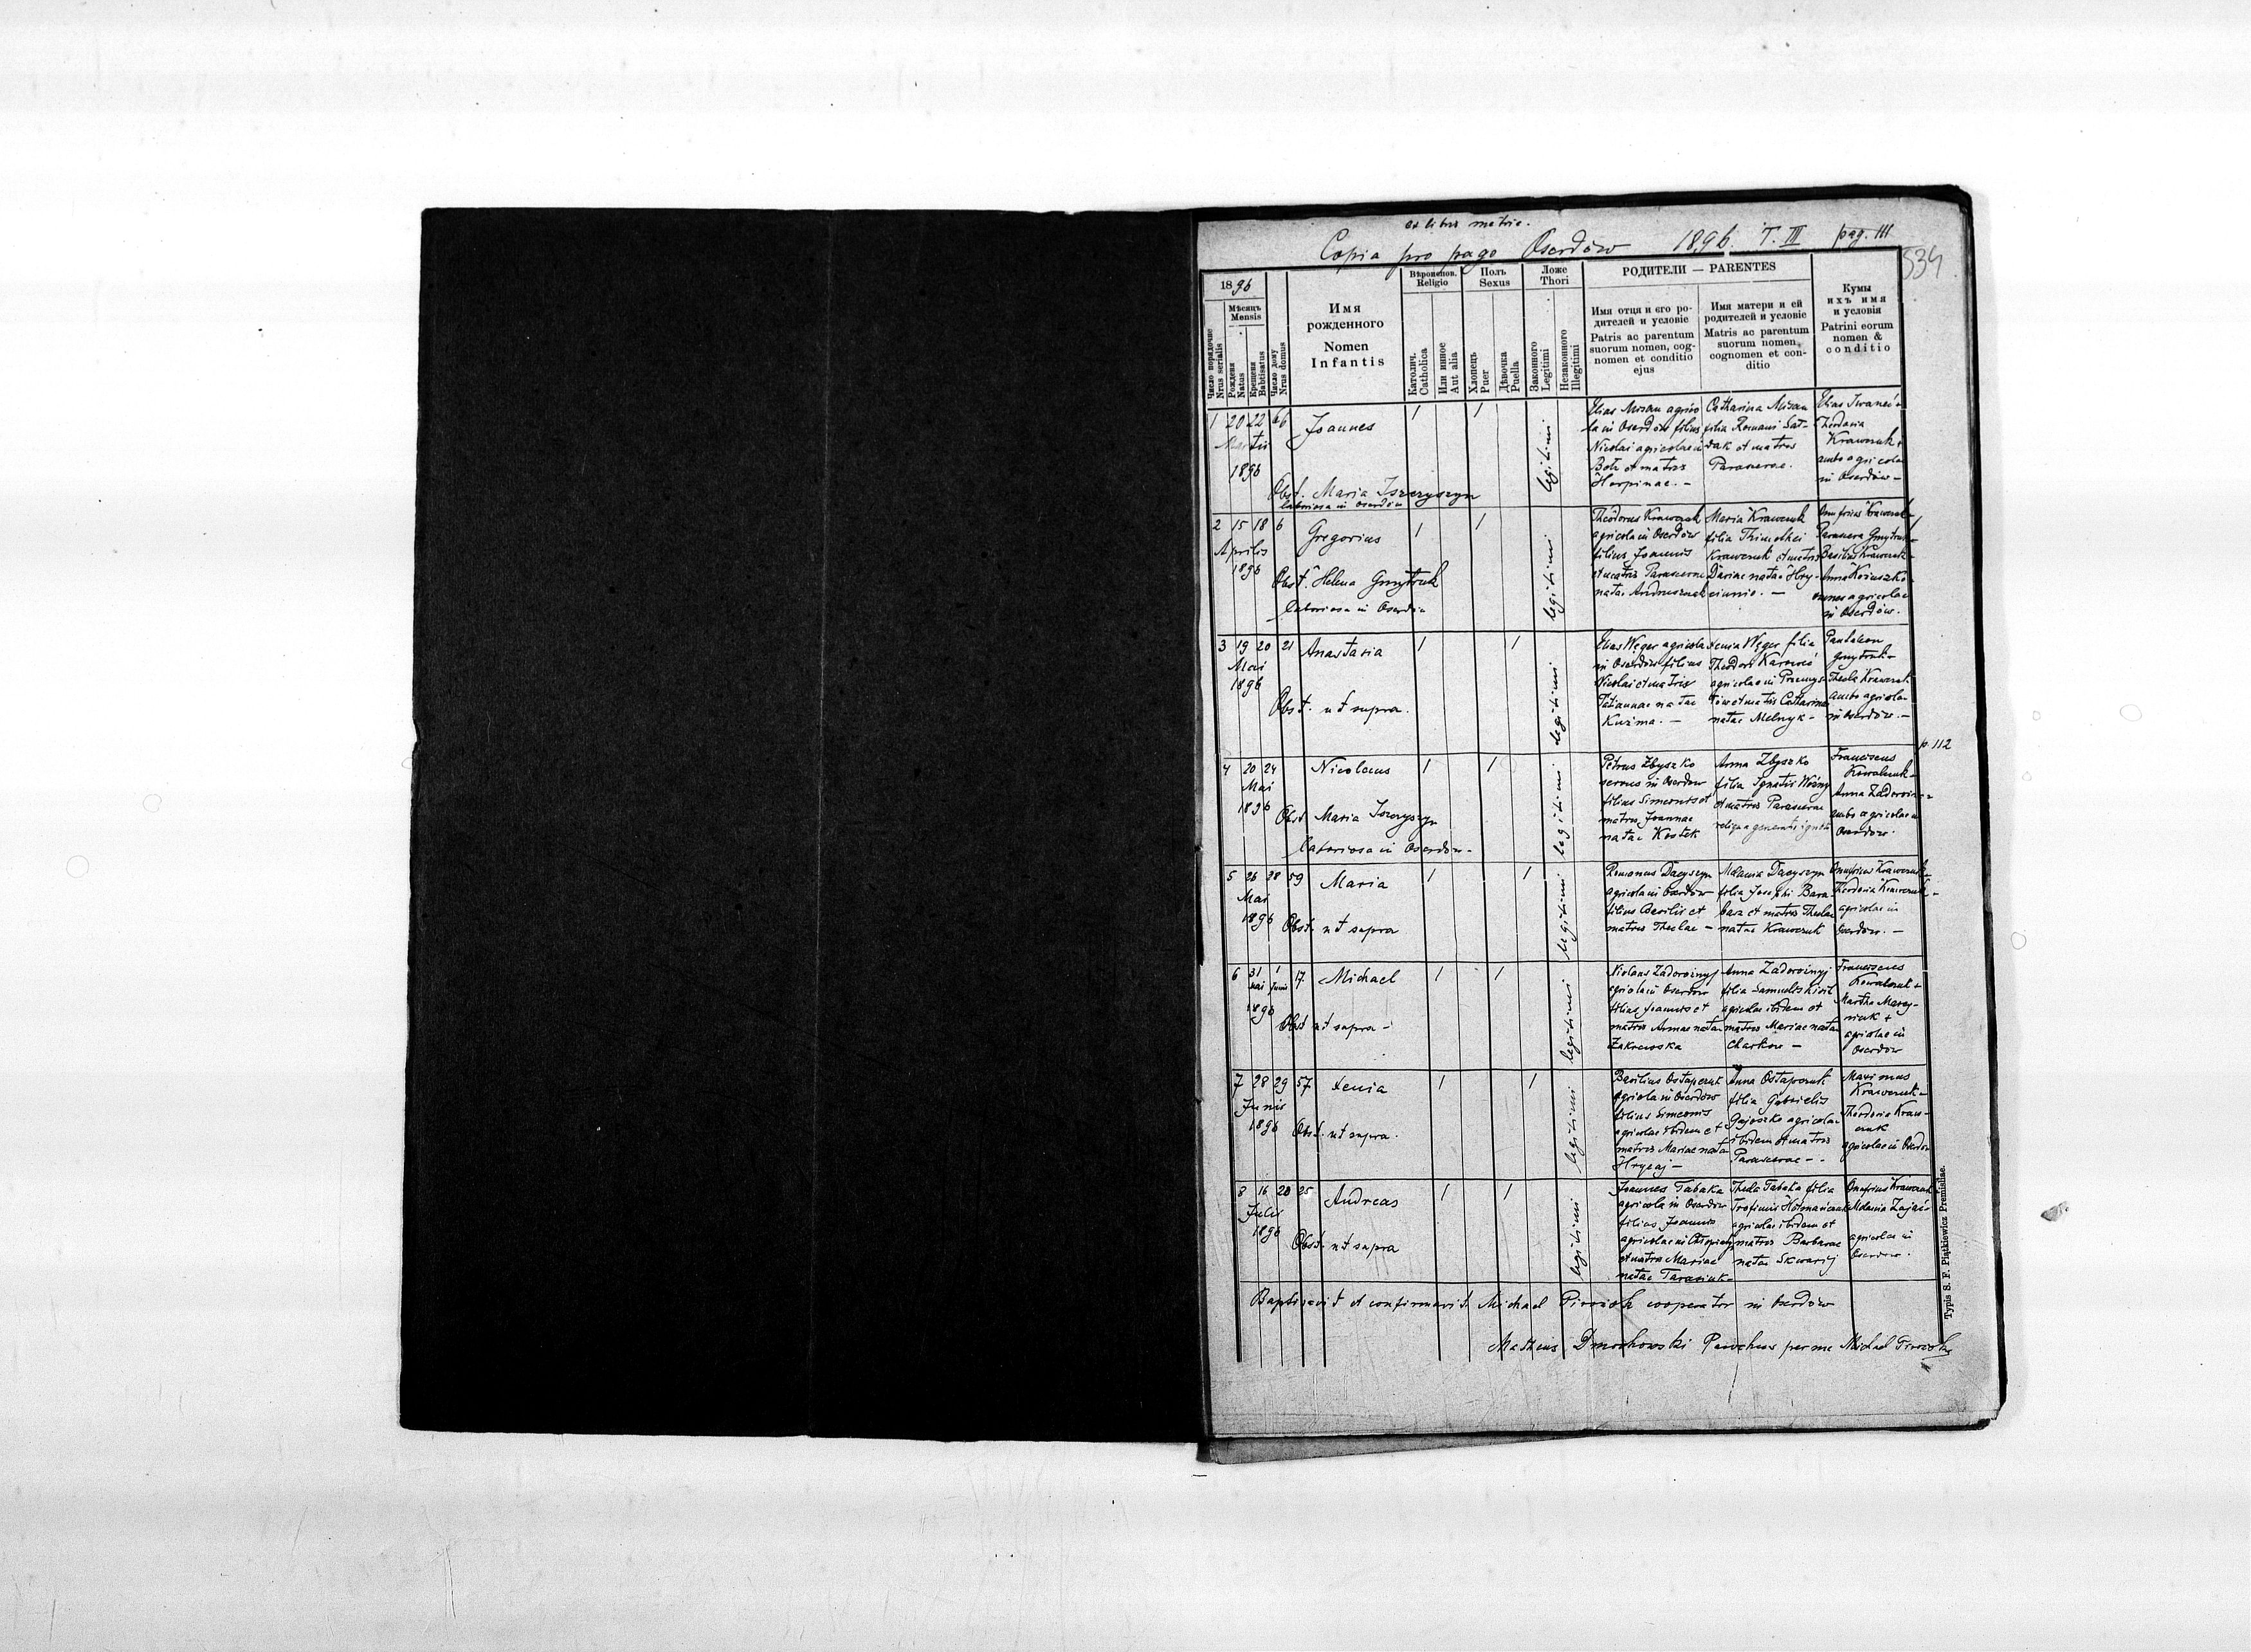 ex libris metric.
Copia pro pago Oserdów 1896. T. III pag. 111
534
1896
Мѣсяцъ
Mensis
Число порядочне
Nrus serialis
Рожденя
Natus
Крещеня
Babtisatus
Число дому
Nrus domus
Имя
рожденного
Nomen
Infantis
Вѣроиспов.
Religio
Католич.
Catholica
Или инное
Aut alia
Полъ
Sexus
Хлопецъ
Puer
Дѣвочка
Puella
Ложе
Thori
Законного
Legitimi
Незаконного
Illegitimi
РОДИТЕЛИ — PARENTES
Имя отця и его ро-
дителей и условіе
Patris ac parentum
suorum nomen, cog-
nomen et conditio
ejus
Имя матери и ей
родителей и условіе
Matris ac parentum
suorum nomen,
cognomen et con-
ditio
Кумы
ихъ имя
и условія
Patrini eorum
nomen &
conditio
1 20 22 66 Joannes
Martii
1896
Obst. Maria Iszczyszyn
laboriosa in Oserdów
legitimi
Elias Mozan agrico
la in Oserdów filius
Nicolai agricolae in
Botz et matris
Horpinae. -
Catharina Mozan
filia Romani
et matris
Parascevae.
Elias
Theodosia
Krawczuk
ambo agricolae
in Oserdów -
2 15 18 6 Gregorius
Aprilis
1896
Obst. Helena Gmytruk
laboriosa in Oserdów
legitimi
Theodorus Krawczuk
agricola in Oserdów
filius Joannis
et matris Parascevae
natae Andruszczak
Maria Krawczuk
filia Thimothei
Krawczuk et matris
Dariae natae Hry-
ciunio. -
Onufrius Krawczuk
Parasceva Gmytruk
Basilius Krawczuk
Anna Kożuszko
omnes agricolae
in Oserdów.
3 19 20 21 Anastasia
Mai
1896
Obst. ut supra.
legitimi
Elias Węger agricola
in Oserdów filius
Nicolai et matris
Tatiannae natae
Kuźma. -
Xenia Węger filia
Theodori
agricolae in Przemys-
łów et matris Catharinae
natae Melnyk -
Pantaleon
Gmytruk -
Thecla Krawczuk
ambo agricolae
in Oserdów. -
p. 112
4 20 24 Nicolaus
Mai
1896
Obst. Maria Iszczyszyn
laboriosa in Oserdów -
legitimi
Petrus Zbyszko
servus in Oserdów
filius Simeonis et
matris Joannae
natae Kostek
Anna Zbyszko
filia Ignatii Woźny
et matris Parascevae
Franciscus
Kowalczuk -
Anna
ambo agricolae in
Oserdów.
5 26 28 59 Maria
Mai
1896
Obst. ut supra
legitimi
Romanus Dacyszyn
agricola in Oserdów
filius Basilii et
matris Theclae -
Melania Dacyszyn
filia Josephi Bara-
basz et matris Theclae
natae Krawczuk
Onufrius Krawczuk
Theodosia Krawczuk -
agricolae in
Oserdów. -
6 31 1 17. Michael
Mai Junii
1896
Obst. ut supra -
legitimi
Nicolaus Zadorożnyj
agricola in Oserdów
filius Joannis et
matris Annae natae
Zakrewska
Anna Zadorożnyj
filia Samuelis
agricolae ibidem et
matris Mariae natae
Charkow -
Franciscus
Kowalczuk +
Martha Marcy-
niuk +
agricolae in
Oserdów
7 28 29 57 Xenia
Junii
1896
Obst. ut supra.
legitimi
Basilius Ostapczuk
agricola in Oserdów
filius Simeonis
agricolae ibidem et
matris Mariae natae
Hrycaj -
Anna Ostapczuk
filia Gabrielis
agricolae
ibidem et matris
Parascevae -
Maximus
Krawczuk -
Theodosia Kraw-
czuk
agricolae in Oserdów
8 16 20 25 Andreas
Julii
1896
Obst. ut supra
legitimi
Joannes Tabaka
agricola in Oserdów
filius Joannis
agricolae in
et matris Mariae
natae Tarasiuk -
Thecla Tabaka filia
Trofimii
agricolae ibidem et
matris Barbarae
natae Skwarij
Onufrius Krawczuk
Melania Zając -
agricolae in
Oserdów.
Baptisavit et confirmavit Michael Pirożok cooperator in Oserdów
Matheus Dmochowski Parochus per me Michael Pirożok
Typis S. F. Piątkiewicz Premisliae.